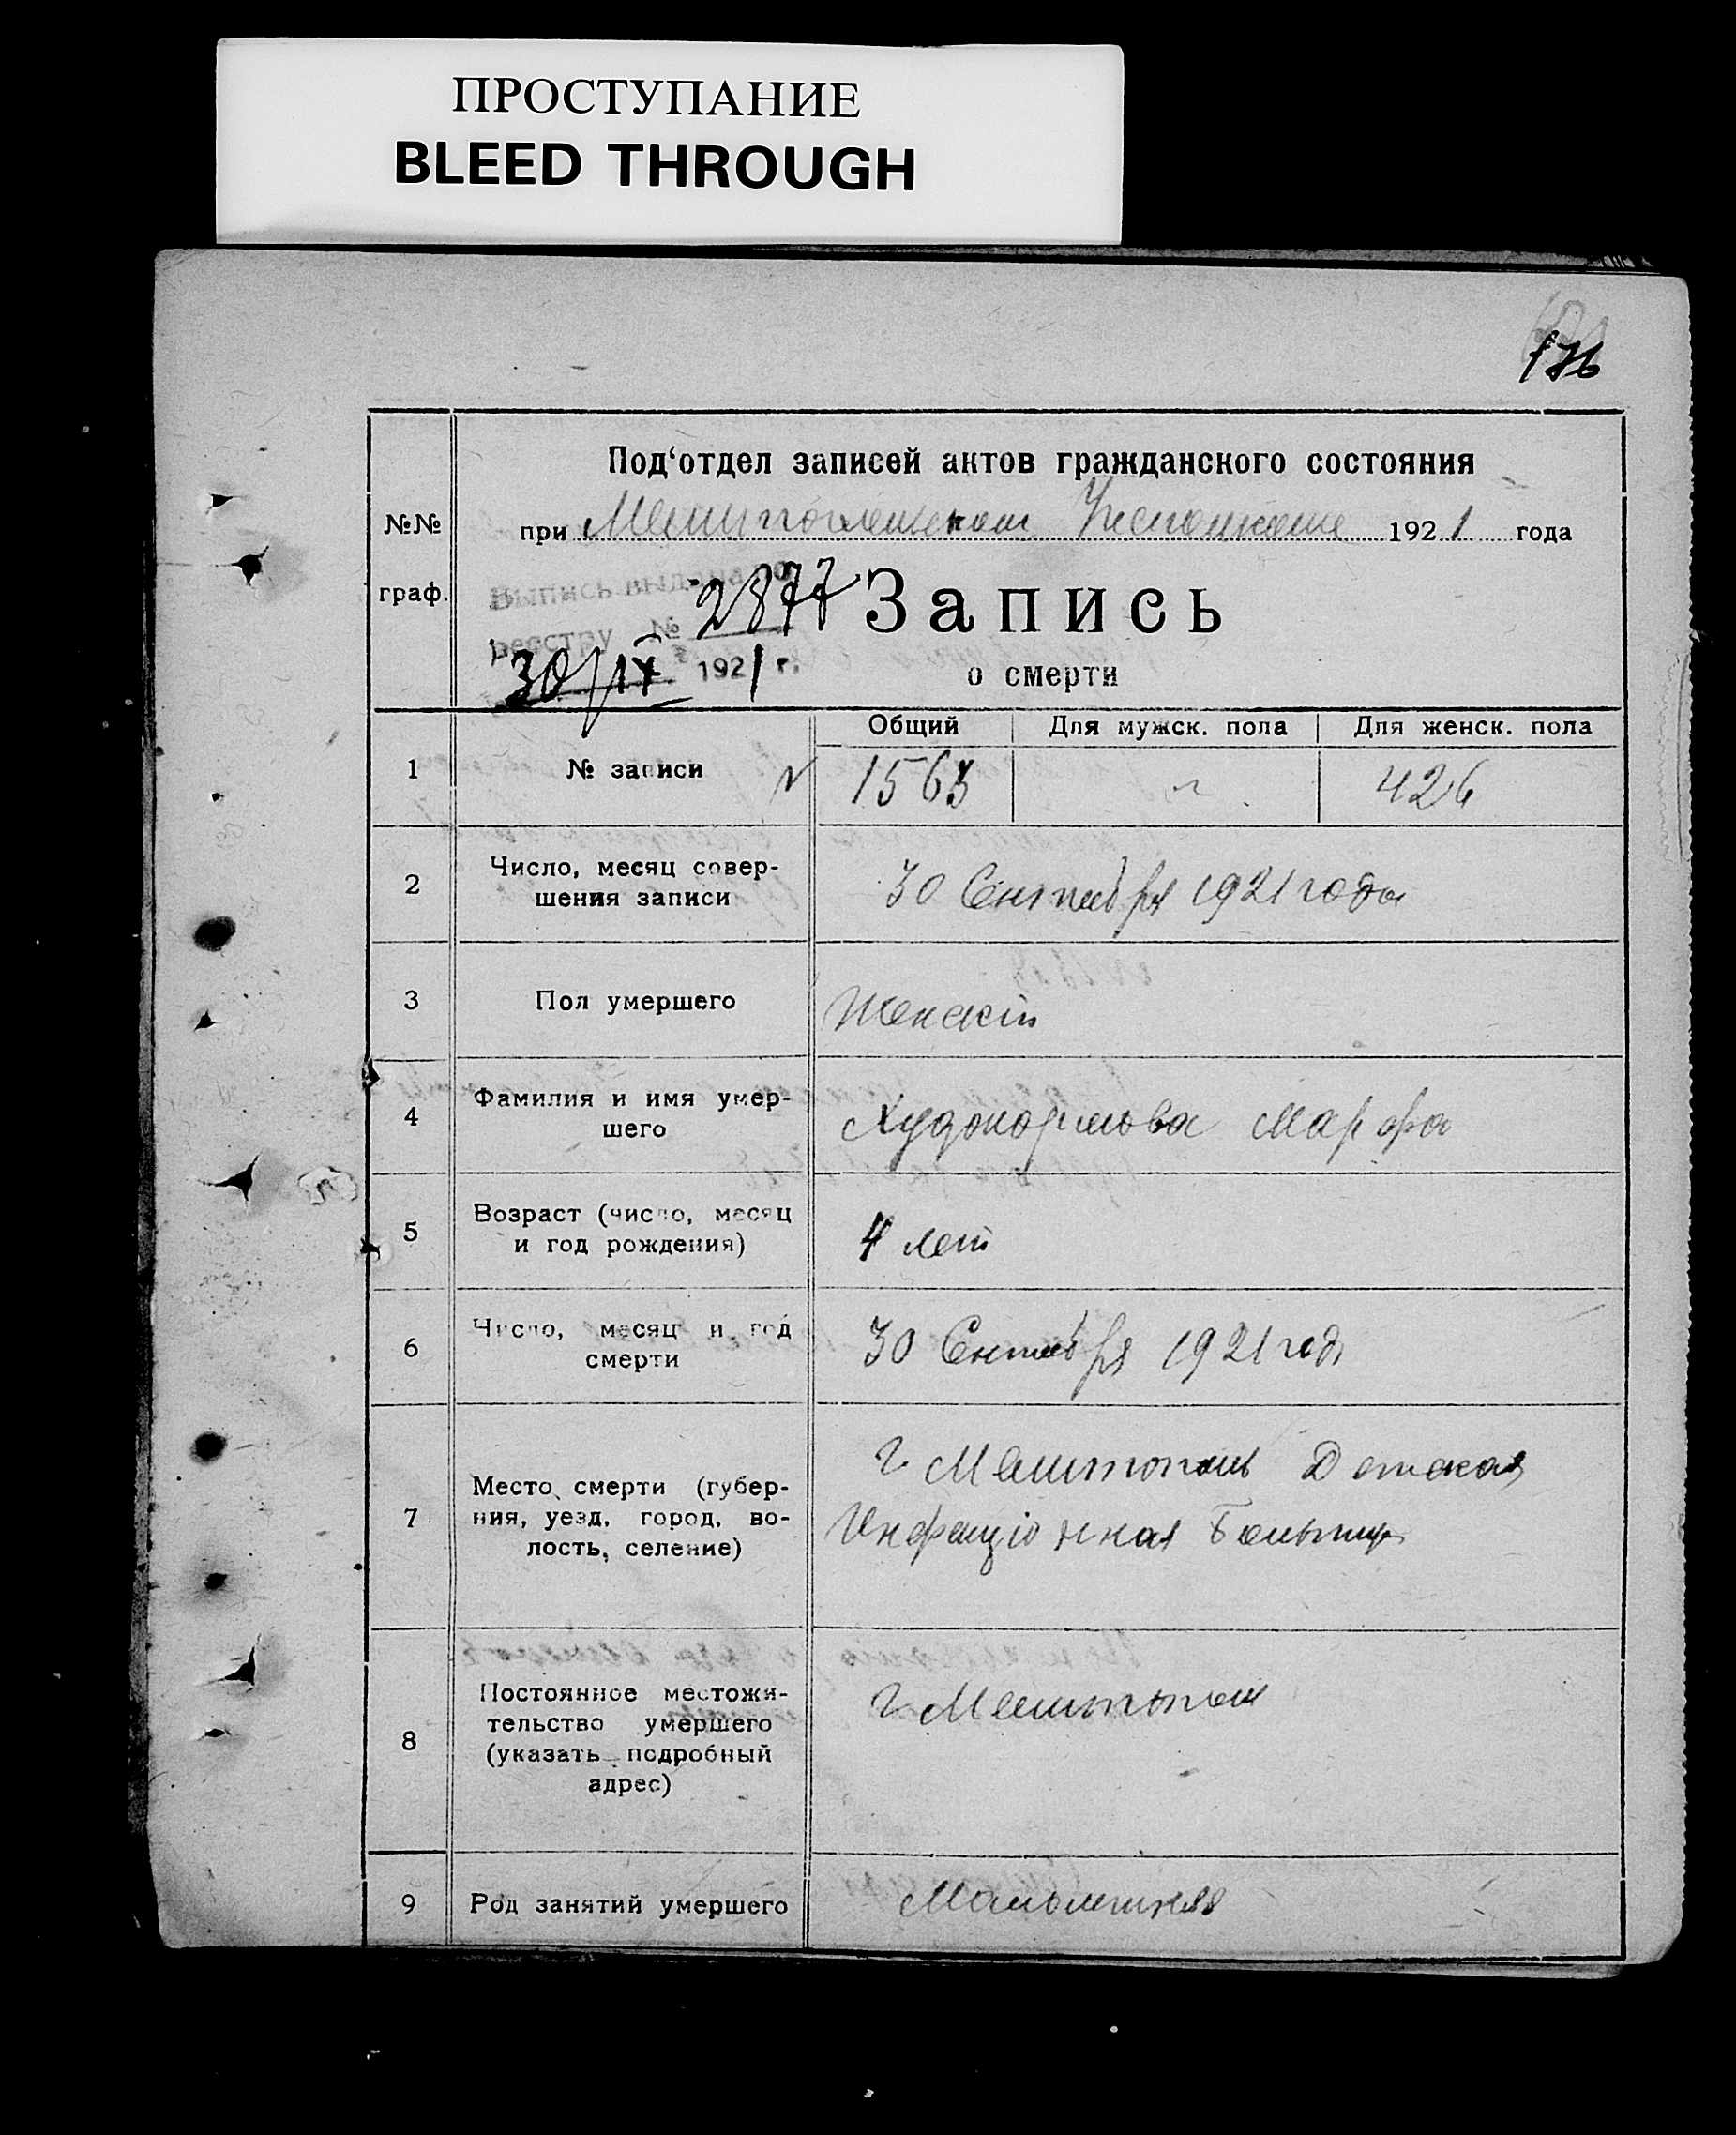 ПРОСТУПАНИЕ
BLEED THROUGH
176
Под‘отдел записей актов гражданского состояния
№№
граф.
при Мелитопольском Исполкоме 1921 года
Выпись выдана по
реестру № 2877
30/IX 1921 г.
Запись
о смерти
Общий Для мужск. пола Для женск. пола
1 № записи 1563 426
2 Число, месяц совер-
шения записи
30 Сентября 1921 года
3 Пол умершего Женскiй
4 Фамилия и имя умер-
шего
Худокормова Марфа
5 Возраст (число, месяц
и год рождения)
4 лет
6 Число, месяц и год
смерти
30 Сентября 1921 год
7 Место смерти (губер-
ния, уезд, город, во-
лость, селение)
г Мелитополь Детская
Инфекцiонная Больница
8 Постоянное местожи-
тельство умершего
(указать подробный
адрес)
г Мелитополь
9 Род занятий умершего Малолетняя